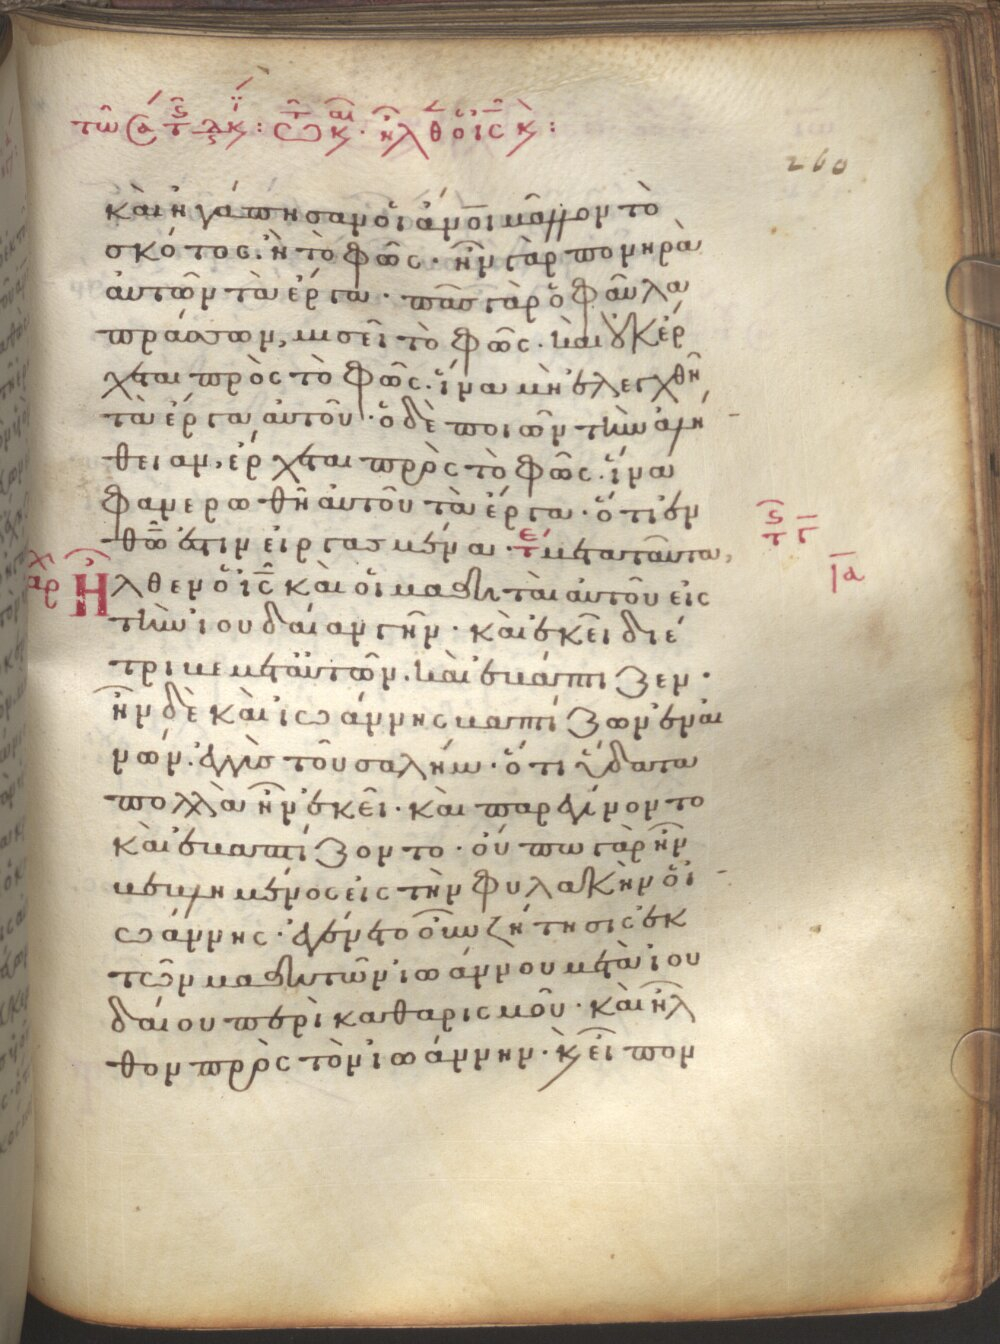 260
καὶ ἠγάπησαν οἱ ἄνοι μᾶλλον τὸ
σκότος. ἢ τὸ φῶς · ἦν γὰρ πονηρὰ
ἀυτῶν τὰ ἔργα · πᾶς γὰρ ὁ φᾶυλα
πράσσων, μισεῖ τὸ φῶς · καὶ οὐκ ἔρ
χεται πρὸς τὸ φῶς · ἵνα μὴ ἐλεγχθῆ
τὰ ἔργα ἀυτοῦ · ὁ δὲ ποιῶν τὴν ἀλή
θειαν, ἔρχεται πρὸς τὸ φῶς · ἵνα
φανερωθῆ ἀυτοῦ τὰ ἔργα · ὅτι ἐν
θῶ ἐστιν εἰργασμένα · μετὰ ταῦτα,
Ἦλθεν ὁ ις καὶ οἱ μαθηταὶ ἀυτοῦ εἰς
τὴν ἰουδαίαν γῆν · καὶ ἐκεῖ διέ
τριβε μετ ἀυτῶν · καὶ ἐβάπτιζεν ·
ἦν δὲ καὶ ἰωάννης βαπτίζων ἐν αἰ
νών · ἐγγὺς τοῦ σαλήμ · ὅτι ὕδατα
πολλὰ ἦν ἐκεῖ · καὶ παρεγίνοντο
καὶ ἐβαπτίζοντο · οὔπω γὰρ ἦν
βεβλημένος εἰς τὴν φυλακὴν ὁ ἰ
ωάννης · ἐγένετο οὖν ζήτησις ἐκ
τῶν μαθητῶν ἰωάννου μετὰ ἰου
δαίου περὶ καθαρισμοῦ · καὶ ἦλ
θον πρὸς τὸν ἰωάννην · κ εἶπον